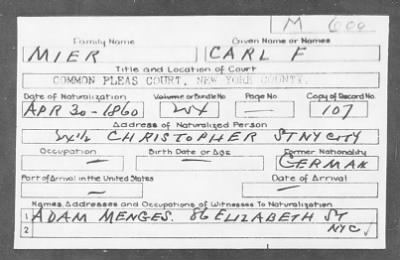 M 600
Family Name Given Name or Names
MIER CARL F
Title and Location of Court
COMMON PLEAS COURT, NEW YORK COUNTY.
Date of Naturalization Volume or Bundle No Page No Copy of Record No.
APR 30-1860 — 107
Address of Naturalized Person
CHRISTOPHER ST NY CITY
Occupation Birth Date or Age Former Nationality
— — GERMAN
Port of Arrival in the United States Date of Arrival
— —
Names, Addresses and Occupations of Witnesses To Naturalization
1 ADAM MENGES. 86 ELIZABETH ST
2 NYC